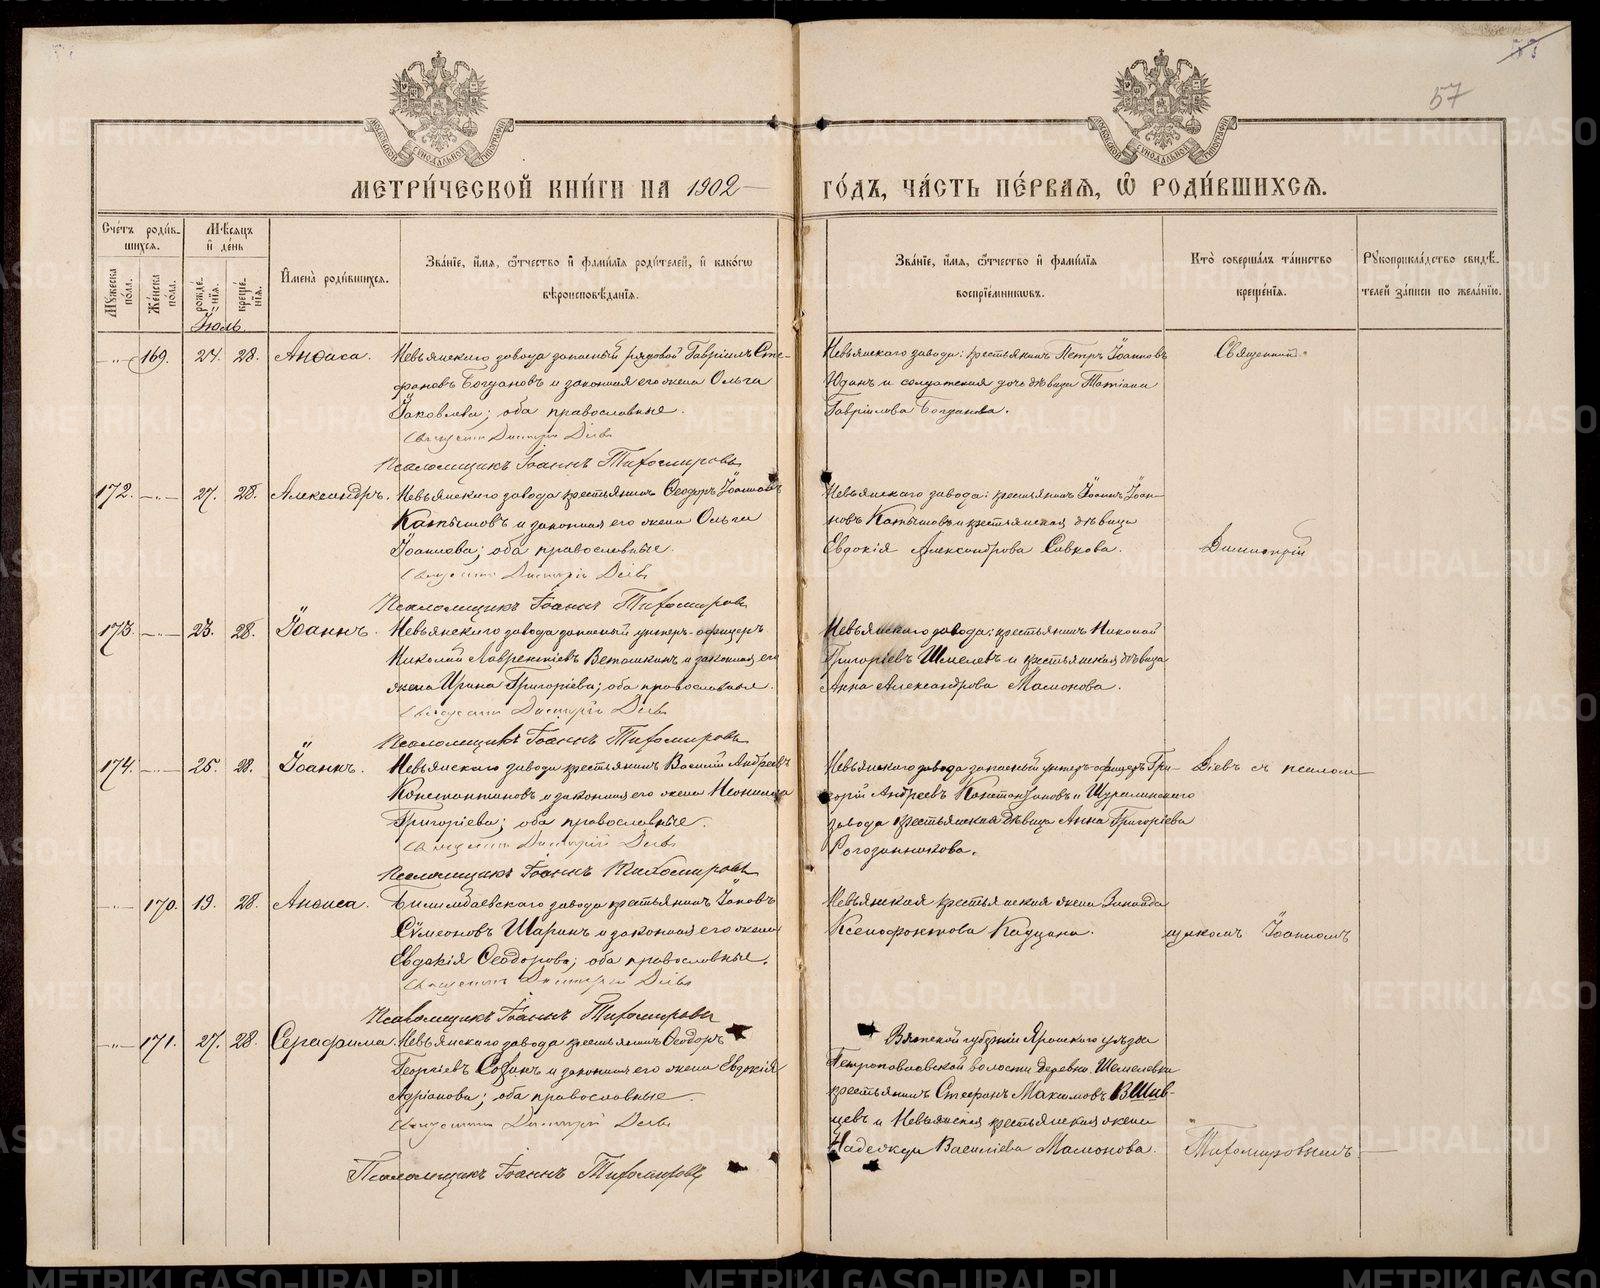 57
МОСКОВСКОЙ СѴНОДАЛЬНОЙ ТИПОГРАФІИ
МОСКОВСКОЙ СѴНОДАЛЬНОЙ ТИПОГРАФІИ
МЕТРИ́ЧЕСКОЙ КНИ́ГИ НА 1902
ГО́ДЪ, ЧА́СТЬ ПЕ́РВАЯ, Ѡ҆ РОДИ́ВШИХСЯ.
Сче́тъ роди́в-
шихся.
Мѣ́сяцъ
и҆ де́нь
Му́жеска
по́ла.
Же́нска
по́ла.
рожде́-
нїя.
креще́-
нїя.
И҆мена̀ роди́вшихся.
Зва́нїе, и҆́мя, ѻ҆́тчество и҆ фами́лїя роди́телей, и҆ како́гѡ
вѣроисповѣ́данїя.
Зва́нїе, и҆́мя, ѻ҆́тчество и҆ фами́лїя
воспрїе́мникѡвъ.
Кто̀ соверша́лъ та́инство
креще́нїя.
Рꙋкоприкла́дство свидѣ́-
телей за́писи по жела́нїю.
Іюль.
169. 24. 28. Анѳиса. Невьянскаго завода запасный рядовой Гавріилъ Сте-
фановъ Богдановъ и законная его жена Ольга
Іаковлева; оба православные.
Священникъ Димитрій Діевъ
Псаломщикъ Іоаннъ Тихомировъ
Невьянскаго завода: крестьянинъ Петръ Іоанновъ
Юдинъ и солдатская дочь дѣвица Татіана
Гавріилова Богданова.
Священникъ
172. 27. 28. Александръ. Невьянскаго завода крестьянинъ Ѳеодоръ Іоанновъ
Катышовъ и законная его жена Ольга
Іоаннова; оба православные.
Священникъ Димитрій Діевъ
Псаломщикъ Іоаннъ Тихомировъ
Невьянскаго завода: крестьянинъ Іоаннъ Іоан-
новъ Катышовъ и крестьянская дѣвица
Евдокія Александрова Савкова.
Димитрій
173. 23. 28. Іоаннъ. Невьянскаго завода запасный унтеръ-офицеръ
Николай Лаврентіевъ Ветошкинъ и законная его
жена Ирина Григоріева; оба православные.
Священникъ Димитрій Діевъ
Псаломщикъ Іоаннъ Тихомировъ
Невьянскаго завода: крестьянинъ Николай
Григоріевъ Шмелевъ и крестьянская дѣвица
Анна Александрова Мамонова.
174. 25. 28. Іоаннъ. Невьянскаго завода крестьянинъ Василій Андреевъ
Константиновъ и законная его жена Неонилла
Григоріева; оба православные.
Священникъ Димитрій Діевъ
Псаломщикъ Іоаннъ Тихомировъ
Невьянскаго завода запасный унтеръ-офицеръ Гри-
горій Андреевъ Константиновъ и Шуралинскаго
завода крестьянская дѣвица Анна Григоріева
Рогозинникова.
Діевъ съ псалом
170. 19. 28. Анѳиса. Билимбаевскаго завода крестьянинъ Іаковъ
Сѵмеоновъ Шаринъ и законная его жена
Евдокія Ѳеодорова; оба православные.
Священникъ Димитрій Діевъ
Псаломщикъ Іоаннъ Тихомировъ
Невьянская крестьянская жена Зинаида
Ксенофонтова
щикомъ Іоанномъ
171. 27. 28. Серафима. Невьянскаго завода крестьянинъ Ѳеодоръ
Георгіевъ и законная его жена Евдокія
Адріанова; оба православные.
Священникъ Димитрій Діевъ
Псаломщикъ Іоаннъ Тихомировъ
Вятской губерніи Яранского уѣзда
Петропавловской волости деревни Шемелевки
крестьянинъ Стефанъ Максимовъ Вшив-
цевъ и Невьянская крестьянская жена
Надежда Василіева Мамонова.
Тихомировымъ.
METRIKI.GASO-URAL.RU